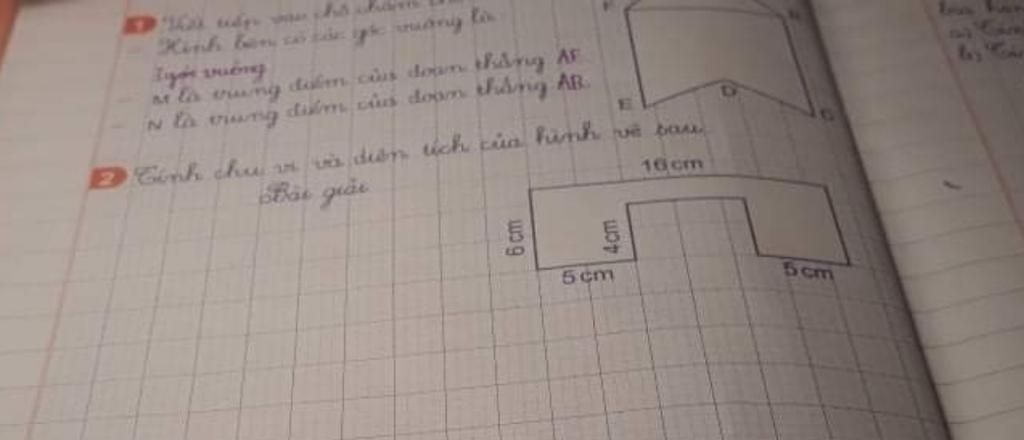 1
- Hình bên có các góc vuông là
Igóc vuông
- M là trung điểm của đoạn thẳng AF
- N là trung điểm của đoạn thẳng AB.
E
D
C
2 Tính chu vi và diện tích của hình vẽ sau
Bài giải
16cm
6cm
4cm
5cm
5cm